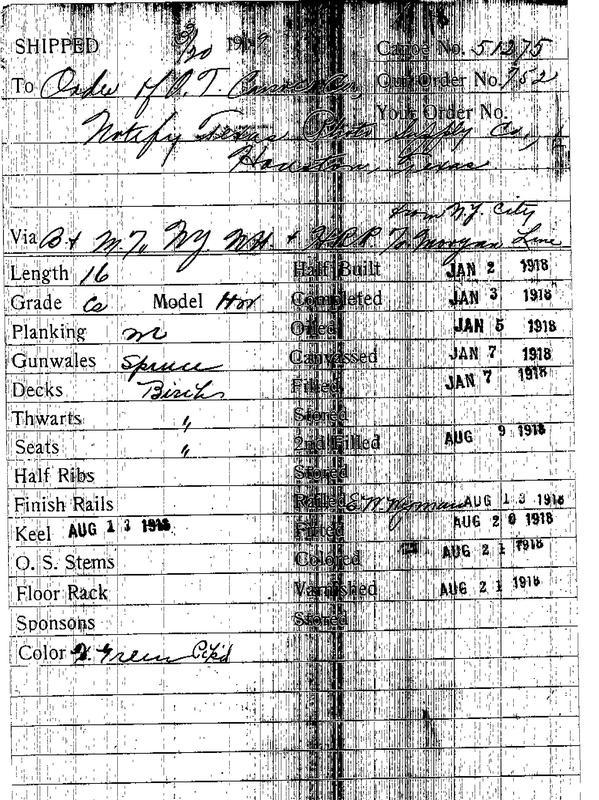 SHIPPED 9/20 191
Canoe No. 51275
To Order of O. T.
Our Order No. 752
Your Order No.
Notify Texas Photo Supply Co.,
Houston, Texas
from N.Y. City
Via B & M. To NY NH. & H.R.R. To Morgan Line
Length 16 Half Built JAN 2 1918
Grade Ca Model Hov Completed JAN 3 1918
Planking m Oiled JAN 5 1918
Gunwales Spruce Canvassed JAN 7 1918
Decks Birch Filled JAN 7 1918
Thwarts " Stored
Seats " 2nd Filled AUG 9 1918
Half Ribs Stored
Finish Rails Railed E.W. Wyman AUG 13 1918
Keel AUG 13 1918 Fitted AUG 20 1918
O. S. Stems Colored AUG 21 1918
Floor Rack Varnished AUG 21 1918
Sponsons Stored
Color Green